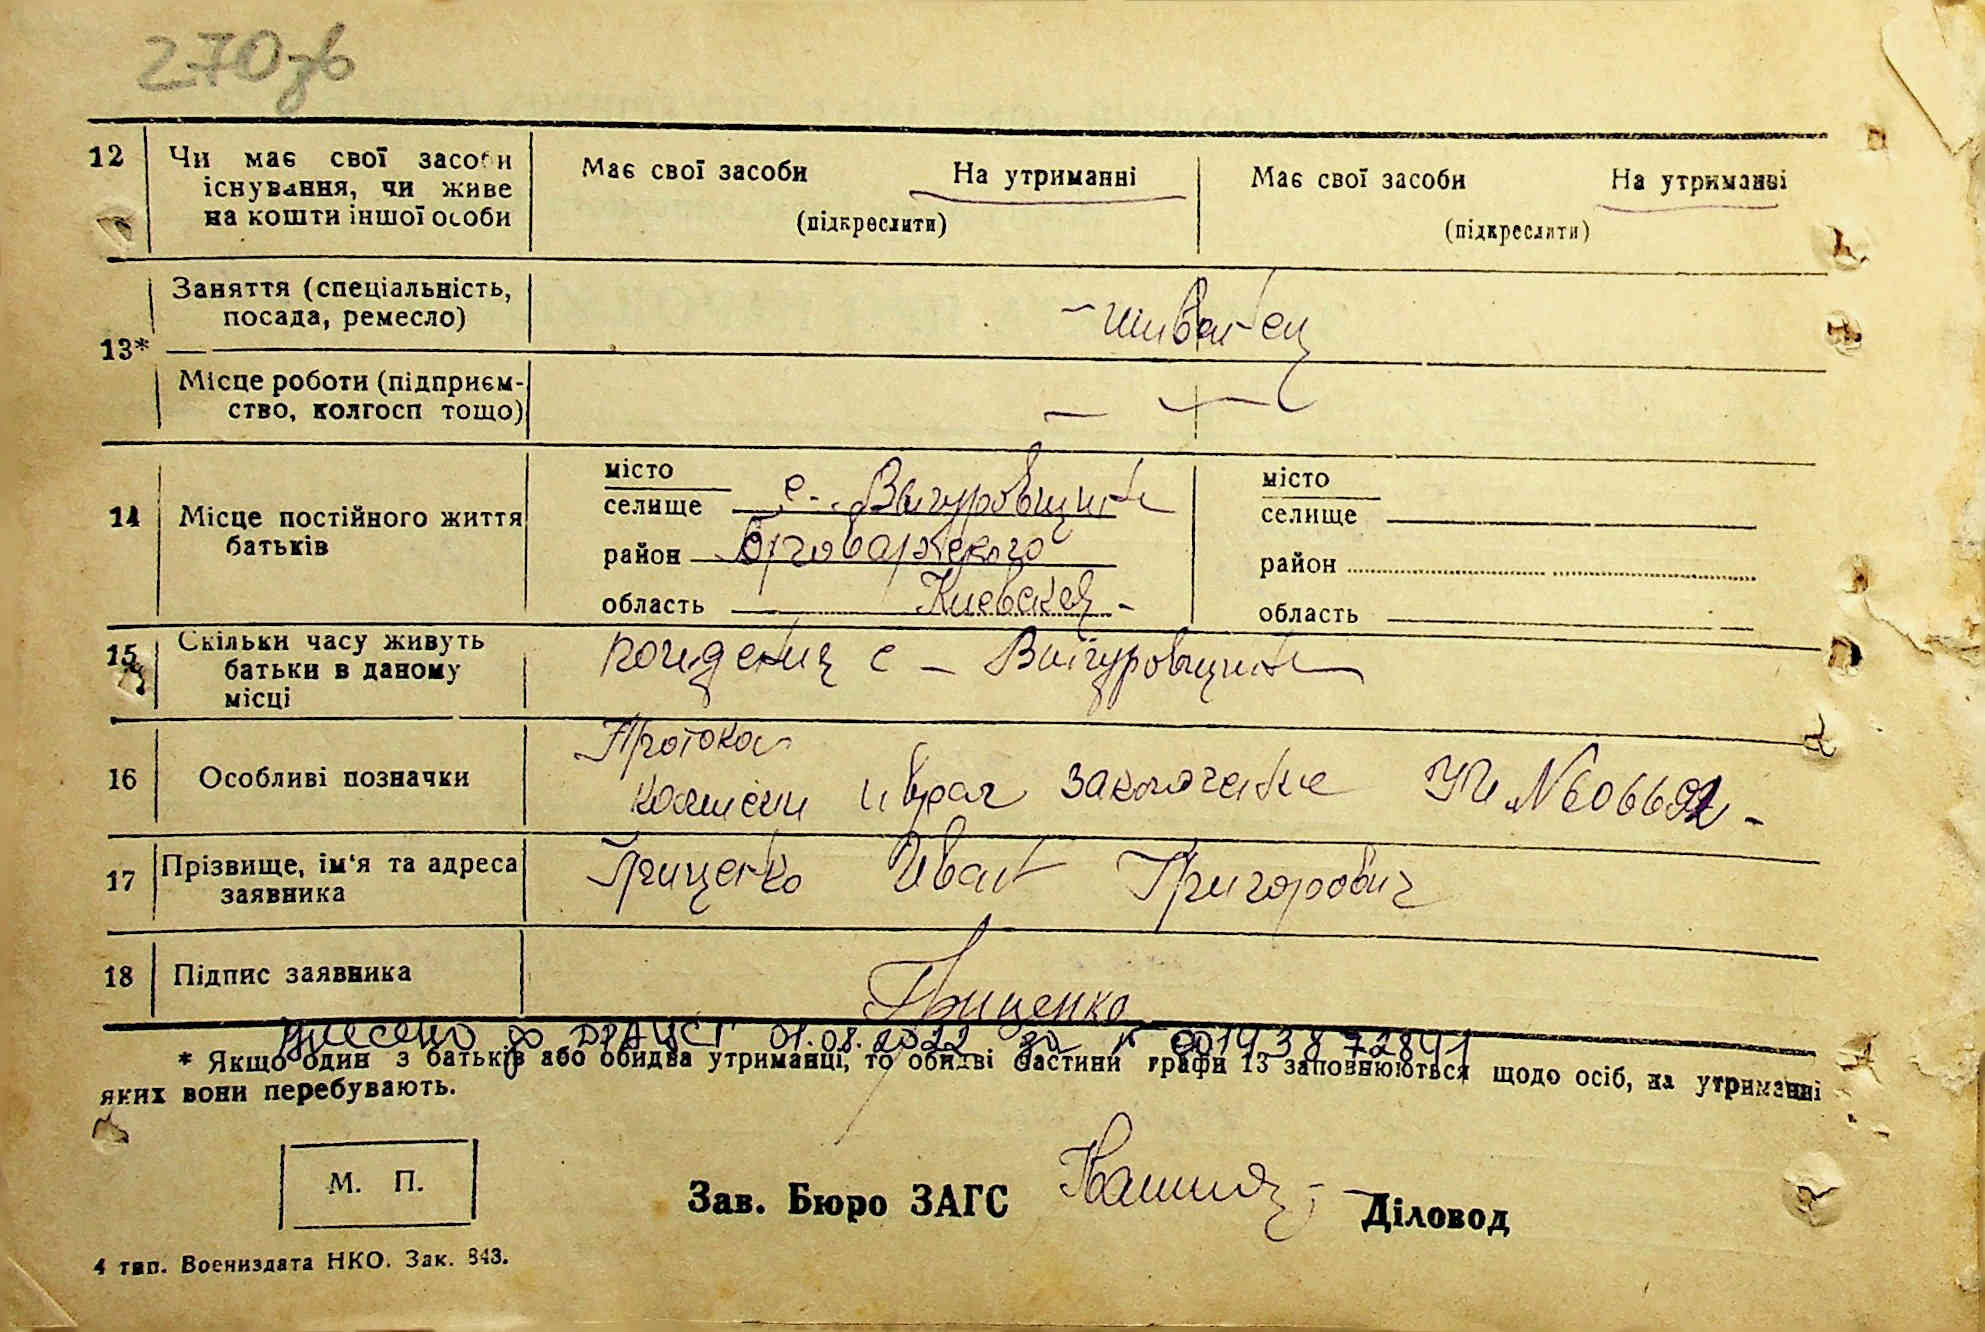 270зв
12 Чи має свої засоби існування, чи живе на кошти іншої особи
Має свої засоби На утриманні
(підкреслити)
Має свої засоби На утриманні
(підкреслити)
13* Заняття (спеціальність, посада, ремесло)
Місце роботи (підприємство, колгосп тощо)
14 Місце постійного життя батьків
місто
селище с. Вигуровщина
район Броварского
область Киевская
місто
селище
район
область
15 Скільки часу живуть батьки в даному місці
рождения с Вигуровщина
16 Особливі позначки
Протокол
комисии и врач заключение
17 Прізвище, ім'я та адреса заявника
Гриценко Иван Григорович
18 Підпис заявника
Гриценко
Внесено до ДРАЦСГ 01.08.2022 за № 00143872841
* Якщо один з батьків або обидва утриманці, то обидві частини графи 13 заповнюються щодо осіб, на утриманні
яких вони перебувають.
М. П.
Зав. Бюро ЗАГС
Діловод
4 тип. Воениздата НКО. Зак. 843.